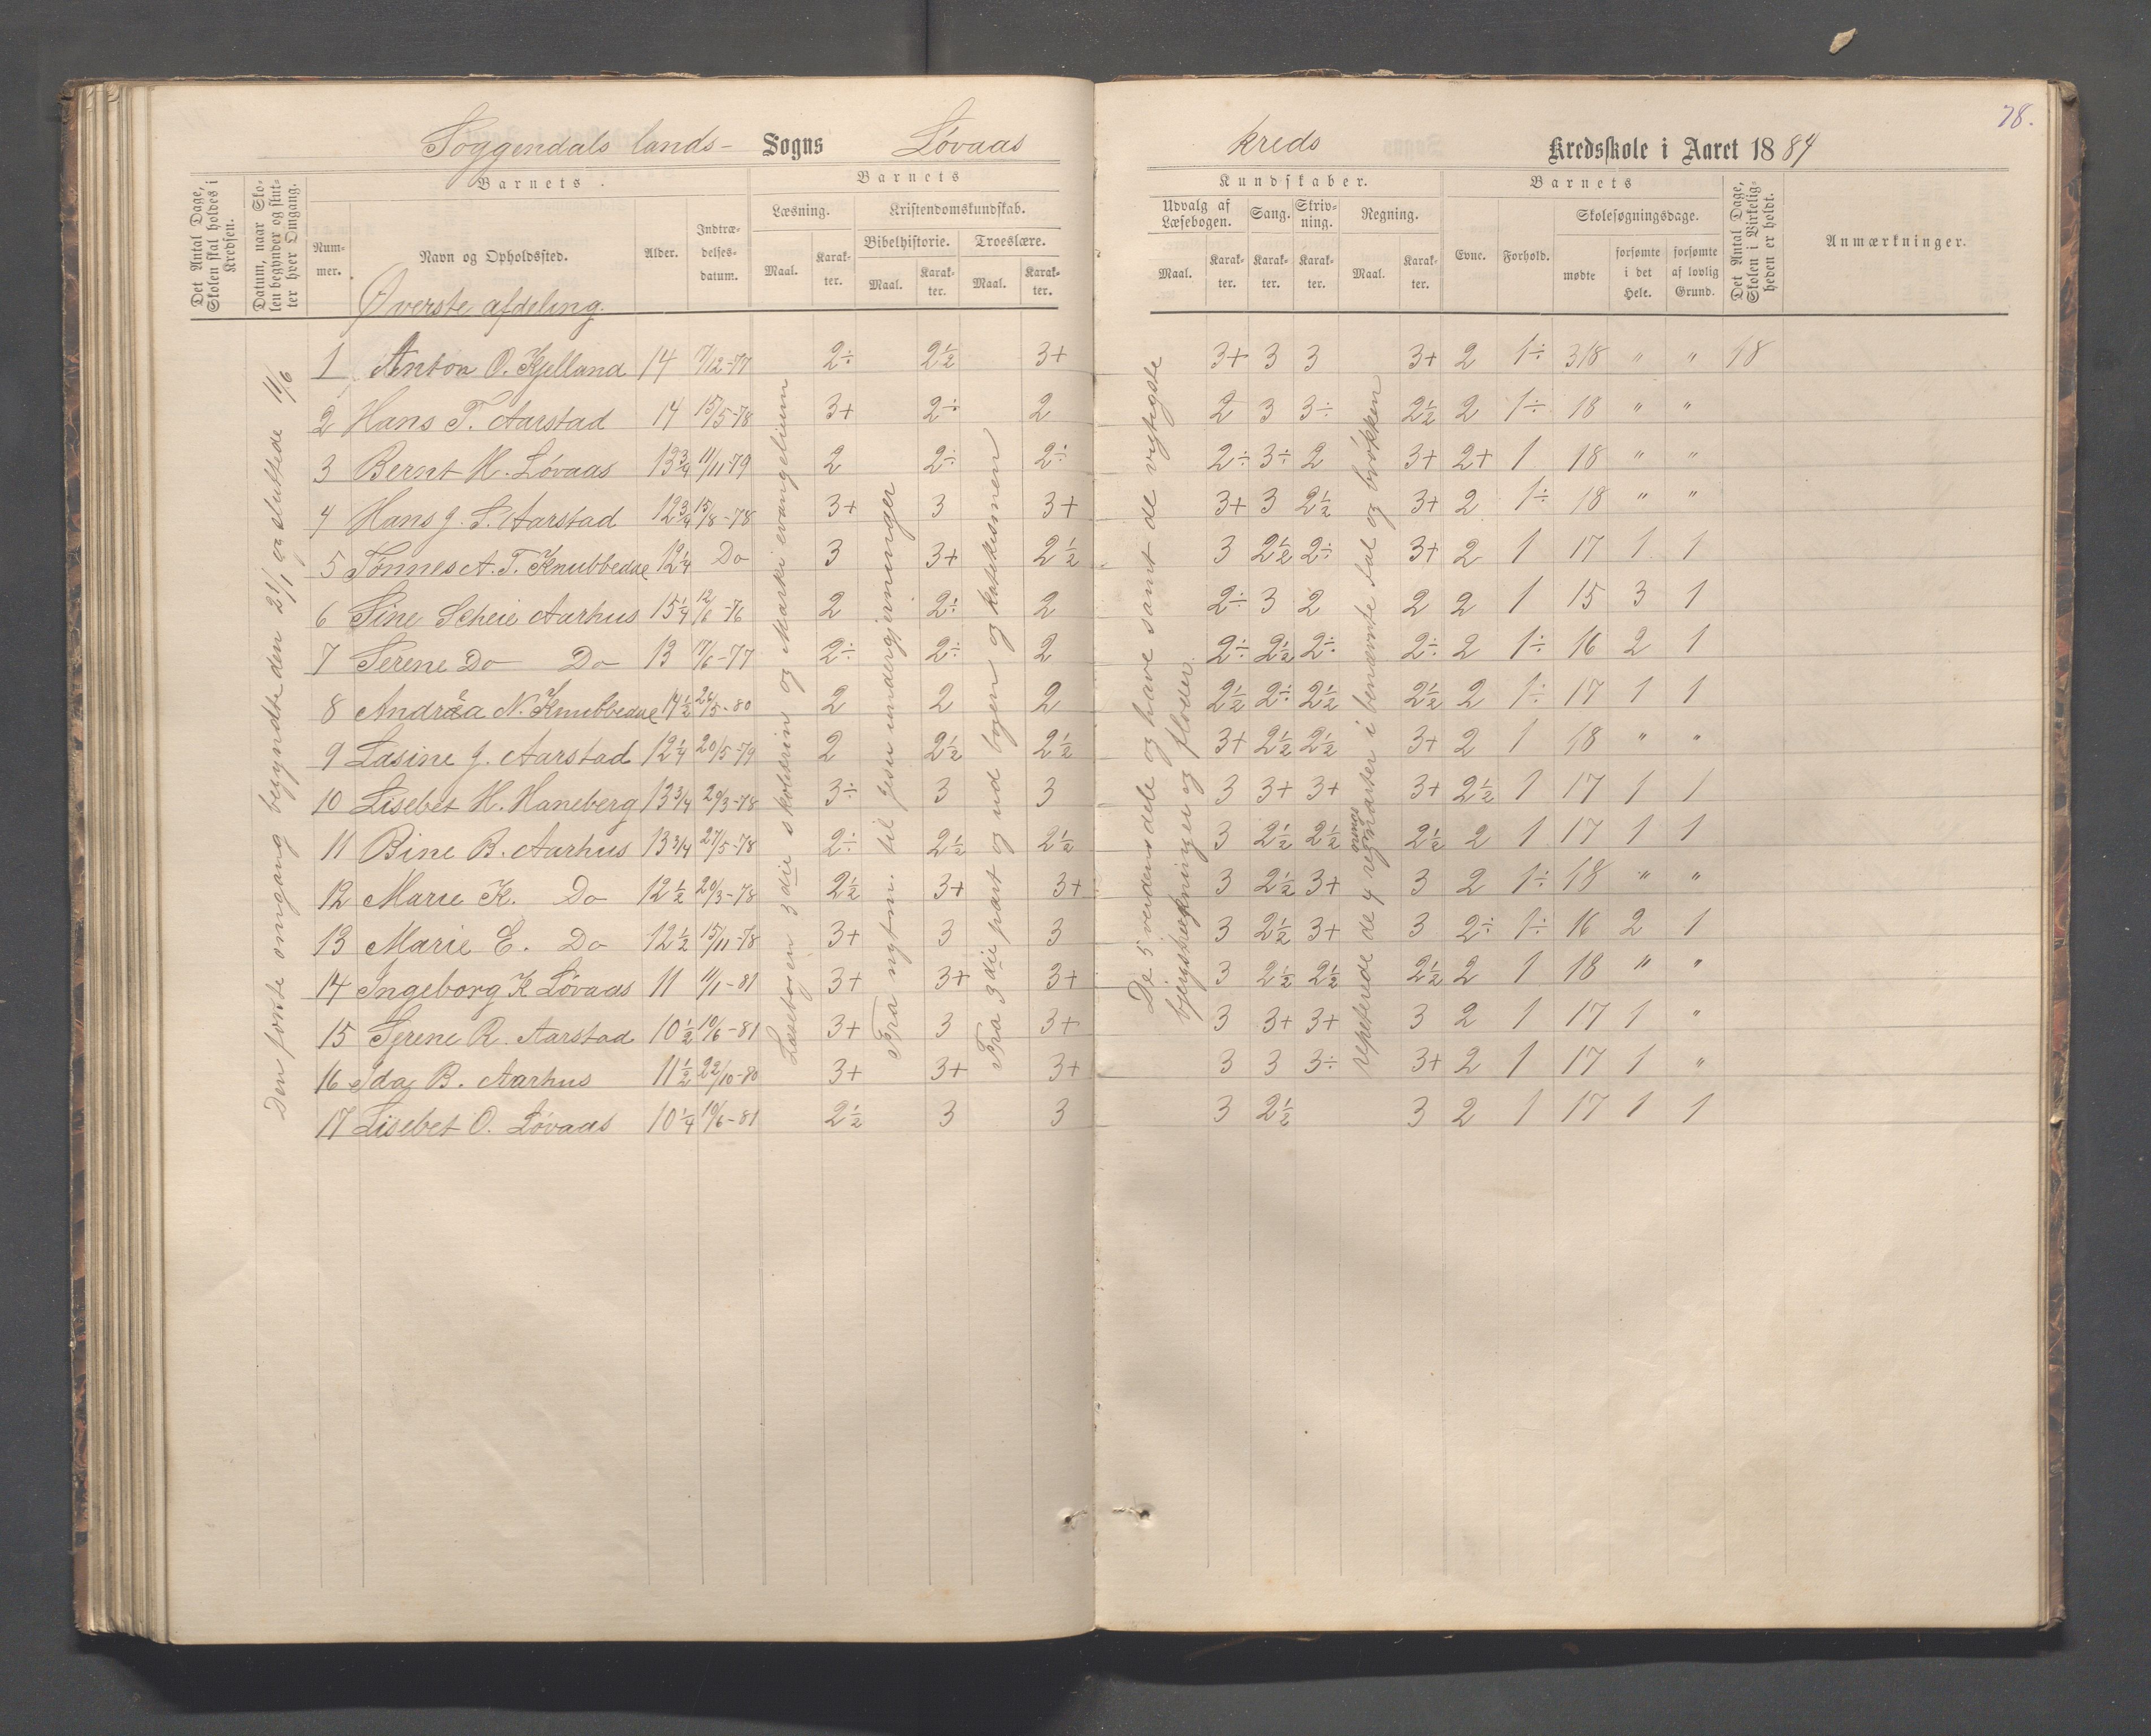 78.
Soggendals lands- Sogns Løvaas kreds Kredsskole i Aaret 1884
Det Antal Dage, Skolen skal holdes i Kredsen.
Datum, naar Skolen begynder og slutter hver Omgang.
Barnets
Nummer.
Navn og Opholdssted.
Alder.
Indtrædelsesdatum.
Barnets
Læsning.
Maal.
Karakter.
Kristendomskundskab.
Bibelhistorie.
Maal.
Karakter.
Troeslære.
Maal.
Karakter.
Kundskaber.
Udvalg af Læsebogen.
Maal.
Karakter.
Sang.
Karakter.
Skrivning.
Karakter.
Regning.
Maal.
Karakter.
Barnets
Evne.
Forhold.
Skolesøgningsdage.
mødte
forsømte i det Hele.
forsømte af lovlig Grund.
Det Antal Dage, Skolen i Virkeligheden er holdt.
Anmærkninger.
Øverste afdeling.
1 Anton O. Kjelland 14 7/12-77 2÷ 2½ 3+ 3+ 3 3 3+ 2 1÷ 318 " " 18
2 Hans T. Aarstad 14 15/5-78 3+ 2÷ 2 2 3 3÷ 2½ 2 1÷ 18 " "
3 Bernt H. Løvaas 13¾ 11/11-79 2 2÷ 2÷ 2÷ 3÷ 2 3+ 2+ 1 18 " "
4 Hans J. S. Aarstad 12¾ 15/8-78 3+ 3 3+ 3+ 3 2½ 3+ 2 1÷ 18 " "
5 Tønnes A. T. Knubbedal 12¼ Do 3 3+ 2½ 3 2½ 2÷ 3+ 2 1 17 1 1
6 Sine Scheie Aarhus 15¼ 12/6-76 2 2÷ 2 2÷ 3 2 2 2 1 15 3 1
7 Serene Do Do 13 17/6-77 2÷ 2÷ 2 2÷ 2½ 2÷ 2÷ 2 1÷ 16 2 1
8 Andrea N. Knubbedal 14½ 26/5-80 2 2 2 2½ 2÷ 2½ 2½ 2 1÷ 17 1 1
9 Lasine J. Aarstad 12¼ 20/5-79 2 2½ 2½ 3+ 2½ 2½ 3+ 2 1 18 " "
10 Lisebet H. Haneberg 13 3/4 20/3-78 3÷ 3 3 3 3+ 3+ 3+ 2½ 1 17 1 1
11 Bine B. Aarhus 13 3/4 27/5-78 2÷ 2½ 2½ 3 2½ 2½ 2½ 2 1 17 1 1
12 Marie K. Do 12½ 20/3-78 2½ 3+ 3+ 3 2½ 3+ 3 2 1÷ 18 " "
13 Marie E. Do 12½ 15/11-78 3+ 3 3 3 2½ 3+ 3 2÷ 1÷ 16 2 1
14 Ingeborg K Løvaas 11 11/1-81 3+ 3+ 3+ 3 2½ 2½ 2½ 2 1 18 " "
15 Serene R. Aarstad 10½ 10/6-81 3+ 3 3+ 3 3+ 3+ 3 2 1 17 1 "
16 Ida B. Aarhus 11½ 22/10-80 3+ 3+ 3+ 3 3 3÷ 3+ 2 1 17 1 "
17 Lisebet O. Løvaas 10¼ 10/6-81 2½ 3 3 3 2½ 3 2 1 17 1 1
Den første omgang begyndte den 21/1 og sluttede 11/6
Læsebogen 3die skoletrin og Marki evangelium
Fra nytm. til Jesu undergjerninger
Fra 3die part og ud bogen og katekismen
De 5 verdensdele og have samt de vigtigste bjergstrækninger og floder.
repeterede de 4 regningsarter i benævnte tal og brøkken